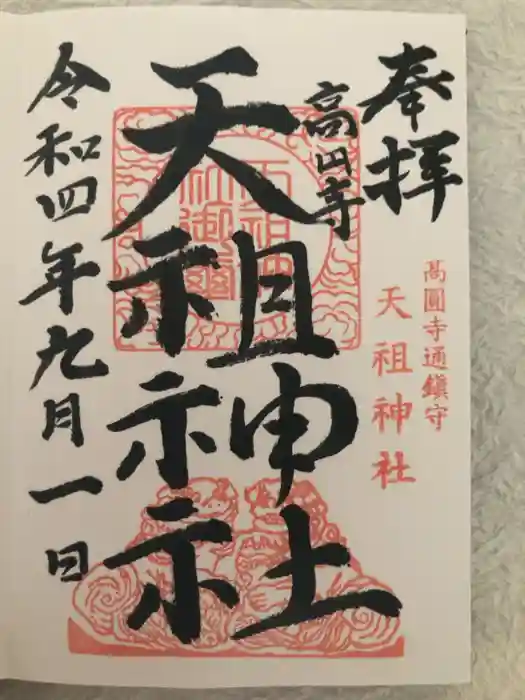 奉拝
髙圓寺通鎮守
天祖神社
高円寺
天祖神社
令和四年九月一日